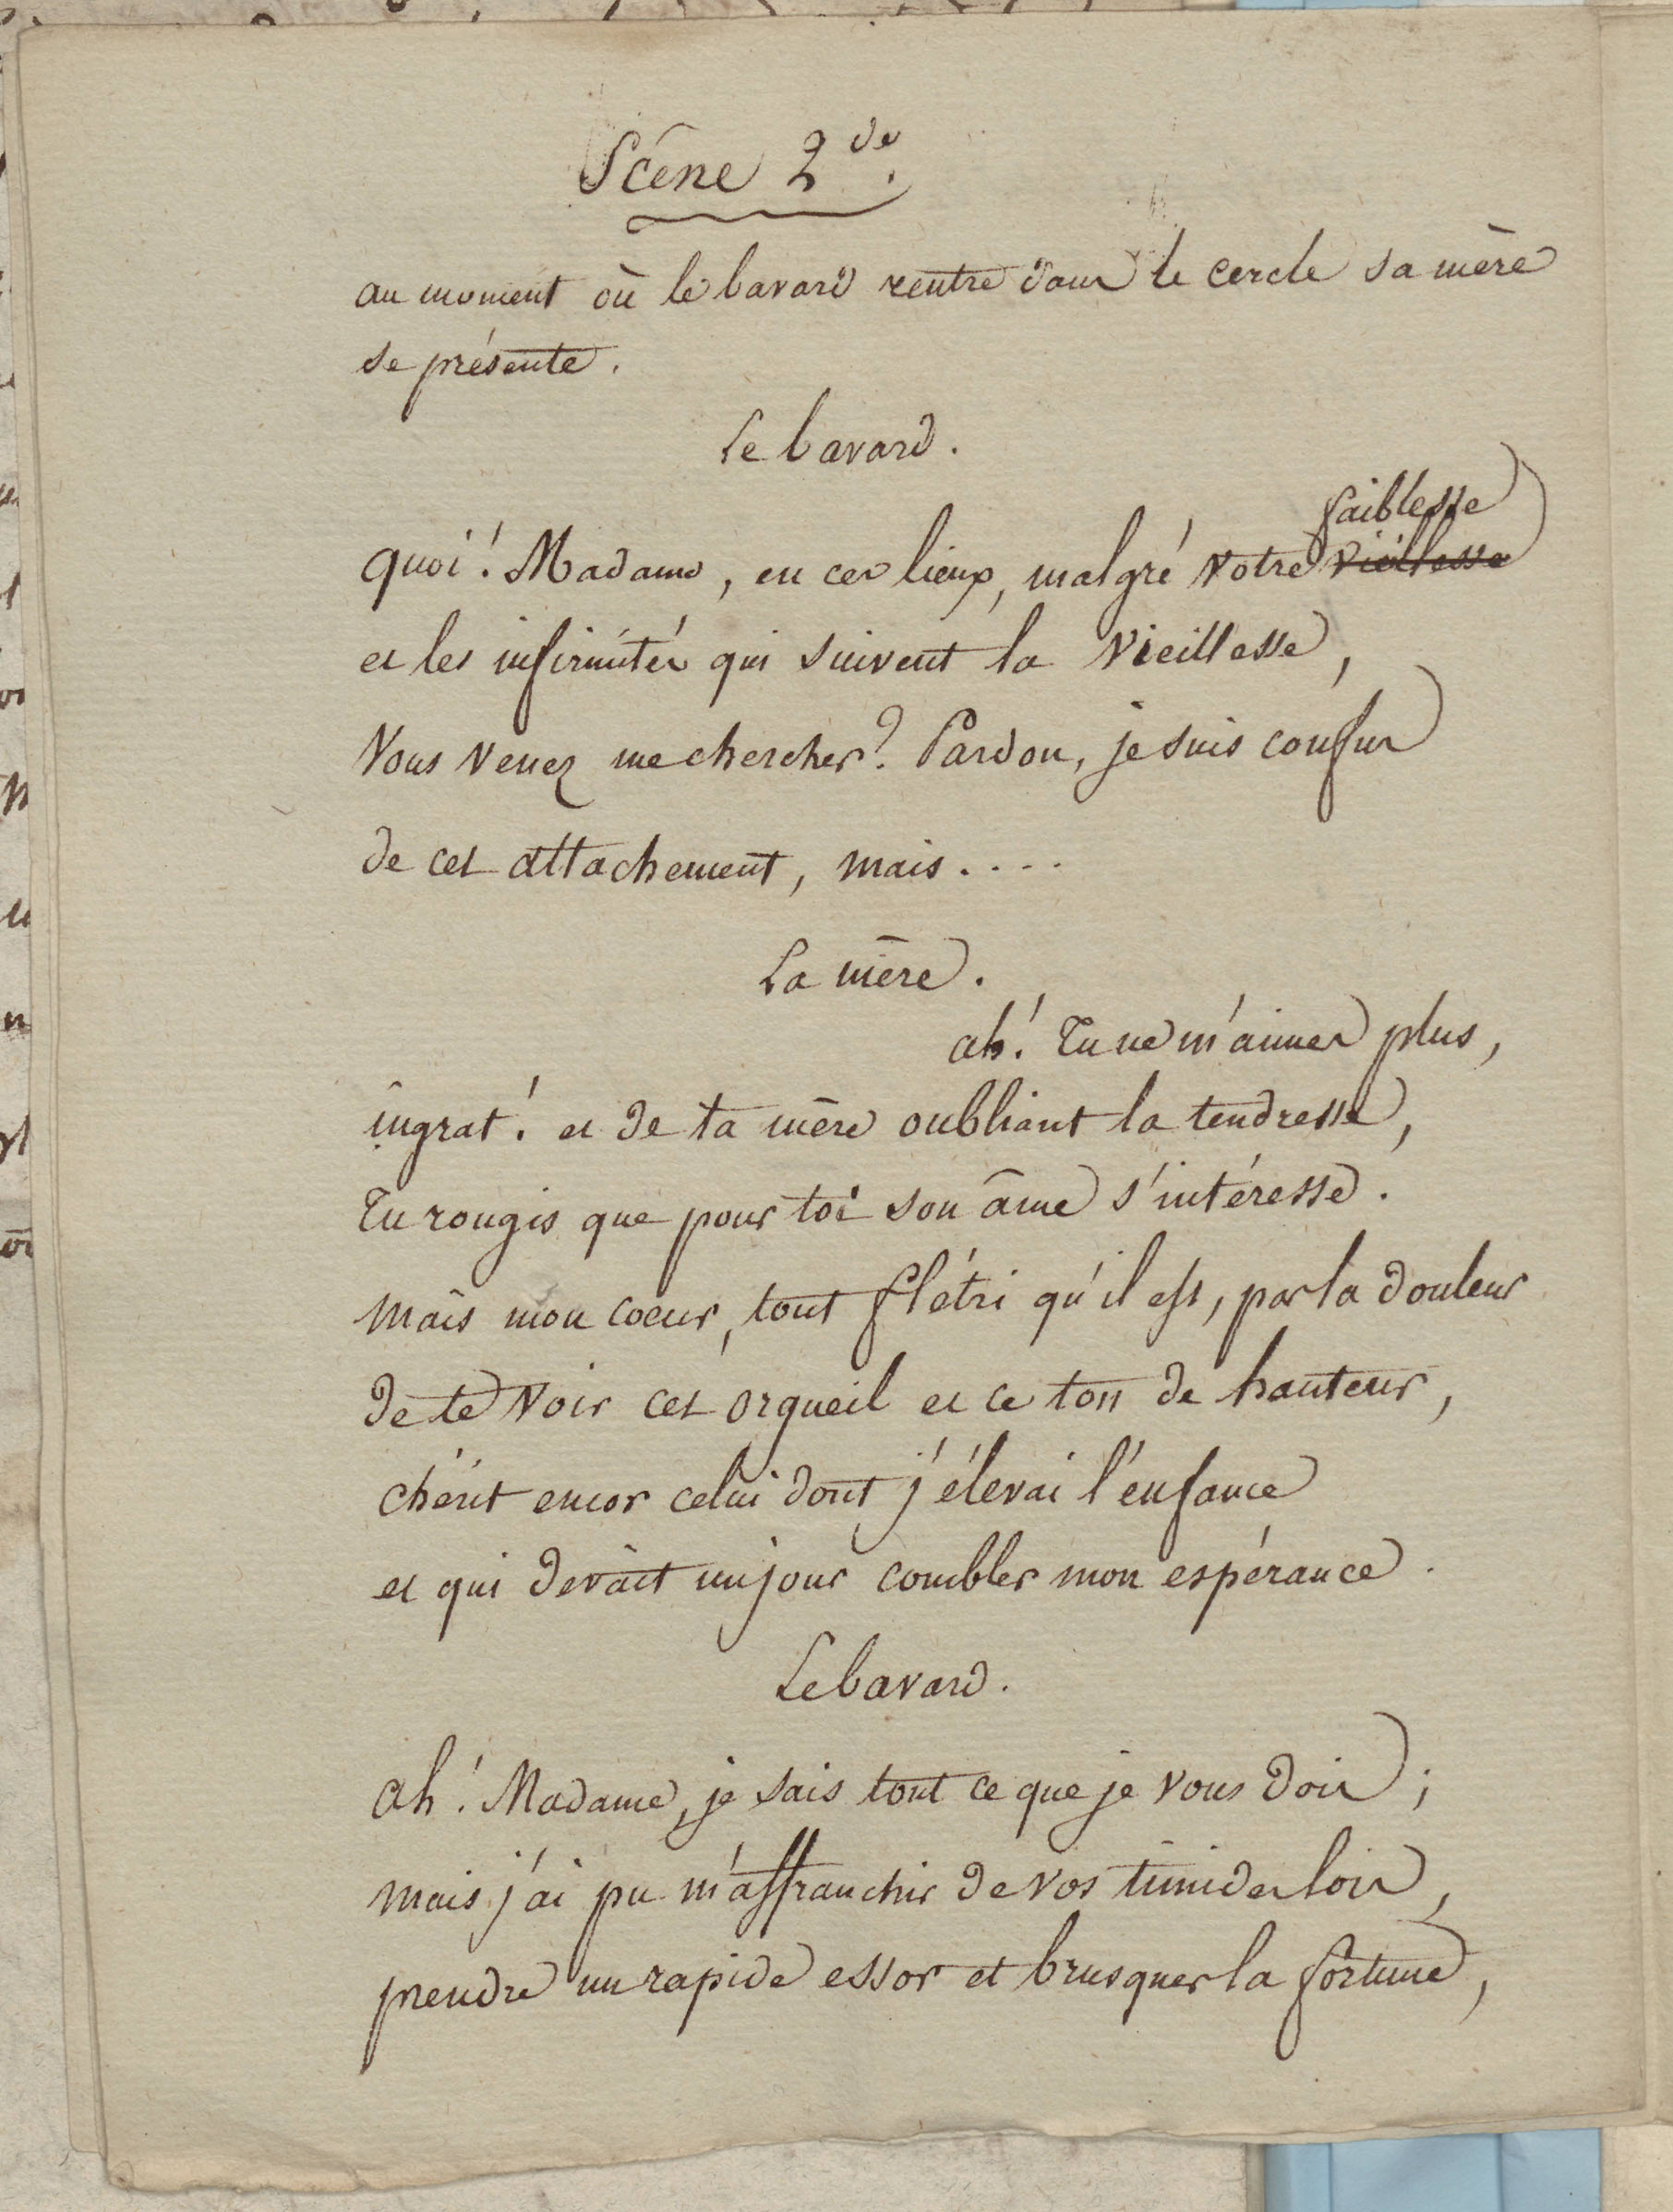 Scéne 2de.
au moment où le bavard rentre dans le cercle sa mère
se présente.
Le bavard.
faiblesse
quoi! Madame, en ces lieux, malgré votre vieillesse
et les infirmités qui suivent la vieillesse,
Vous venez me chercher? Pardon, je suis confus
de cet attachement, mais....
La mère.
ah! Tu ne m'aimes plus,
ingrat! et de ta mère oubliant la tendresse,
Tu rougis que pour toi son âme s'intéresse.
mais mon coeur, tout flétri qu'il est, par la douleur
de te voir cet orgueil et ce ton de hauteur,
chérit encor celui dont j'élevai l'enfance
et qui devait un jour combler mon espérance.
Le bavard.
ah! Madame, je sais tout ce que je vous dois;
mais j'ai pu m'affranchir de vos timides lois,
prendre un rapide essor et brusquer la fortune,